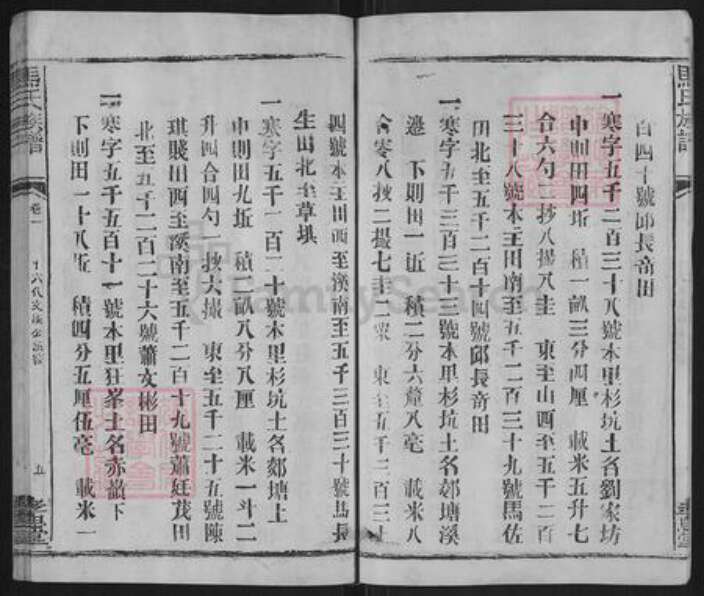 百四十號邱長奇田
一寒字五千二百三十八號本里杉坑土名劉家坊
中則田四坵 積一畝三分四厘 載米五升七
合六勺二抄八撮八圭 東至山西至五千二百
三十八號本主田南至五千二百三十九號馬佐
田北至五千二百四號邱長奇田
一寒字五千三百三十三號本里杉坑土名鄒塘溪
邊 下則田一坵 積二分六釐八毫 載米八
合零八抄二撮七圭二粟 東至五千三百三十
四號本主田西至溪南至五千三百三十號馬長
生田北至草埧
一寒字五千一百二十號本里杉坑土名鄒塘上
中則田九坵 積二畝八分八厘 載米一斗二
升四合四勺一抄六撮 東至五千二十五號陳
琪賤田西至溪南至五千二百十九號蕭廷茂田
北至五千二百二十六號蕭文彬田
一寒字五千五百十一號本里狂峯土名赤嶺下
下則田一十八坵 積四分五厘伍毫 載米一
馬氏族譜
卷一
五
馬氏族譜